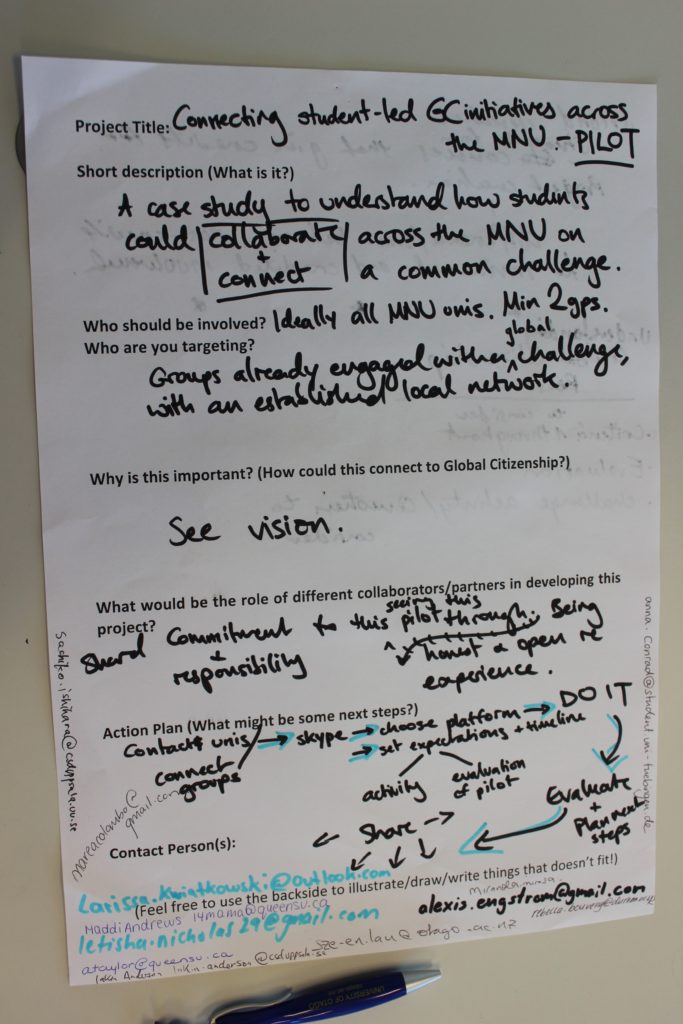 Project Title: Connecting student-led GC initiatives across
the MNU - PILOT
Short description (What is it?)
A case study to understand how students
could collaborate across the MNU on
+
connect a common challenge.
Who should be involved? Ideally all MNU unis. Min 2gps.
Who are you targeting?
global
Groups already engaged with a challenge,
with an established local network.
Why is this important? (How could this connect to Global Citizenship?)
See vision.
What would be the role of different collaborators/partners in developing this
project?
seeing this
Shared Commitment to this pilot through. Being
+
responsibility
honest & open re
experience.
Action Plan (What might be some next steps?)
Contact unis → skype → choose platform → DO IT
connect
groups
→ set expectations + timeline
activity
evaluation
of pilot
Evaluate
+
Plan next
steps
← Share →
Contact Person(s):
Larissa.kwiatkowski@outlook.com
(Feel free to use the backside to illustrate/draw/write things that doesn't fit!)
Maddi Andrews 14mama@queensu.ca
alexis.engstrom@gmail.com
letisha.nicholas29@gmail.com
sze-en.lau@otago.ac.nz
ataylor@queensu.ca
@csduppsala.se
sachiko.ishihara@csduppsala.uu.se
@gmail.com
anna.conrad@student.uni-tuebingen.de
UNIVERSITY OF OTAGO